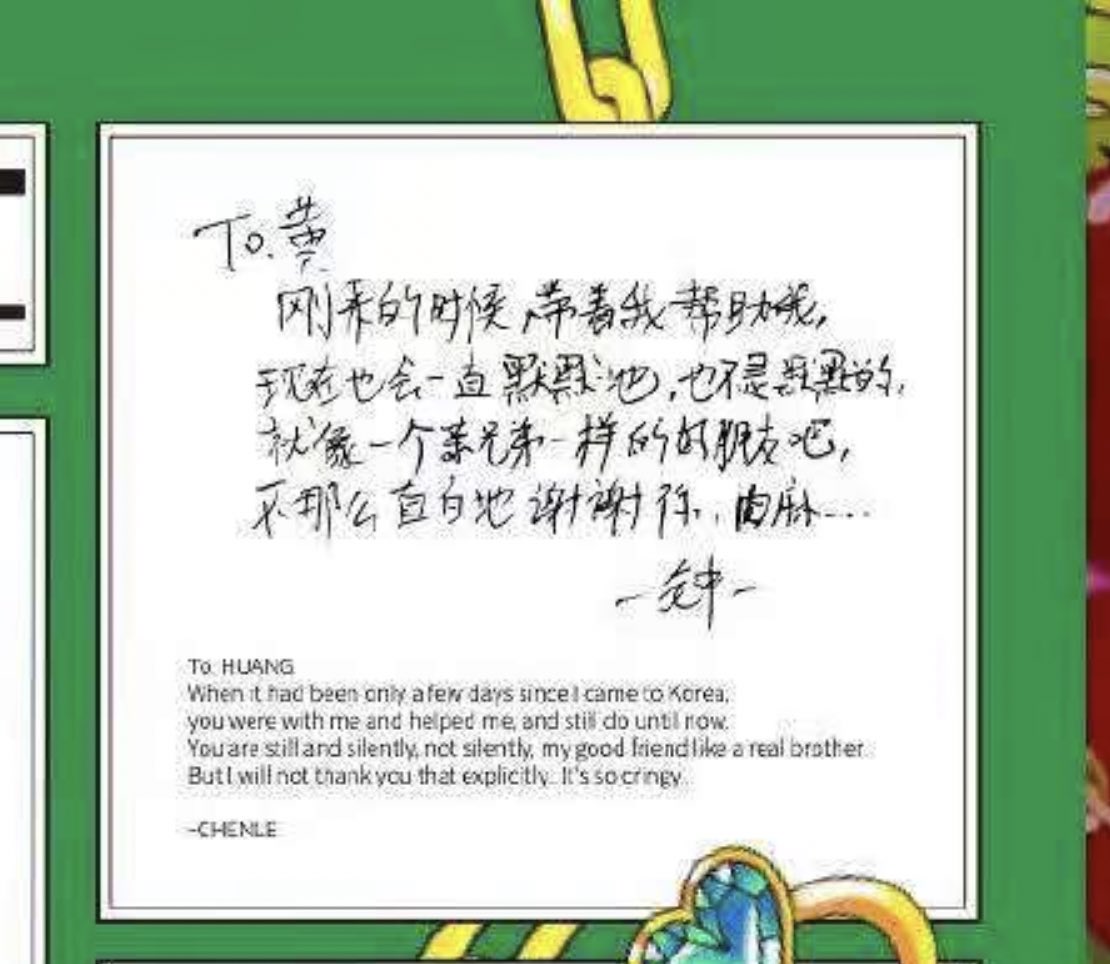 To. 黄
刚来的时候,带着我帮助我,
现在也会一直默默地,也不是默默的,
就像一个亲兄弟一样的好朋友吧,
不那么直白地谢谢你..肉麻...
To. HUANG
When it had been only a few days since I came to Korea,
you were with me and helped me, and still do until now.
You are still and silently, not silently, my good friend like a real brother.
But I will not thank you that explicitly. It's so cringy.
-CHENLE